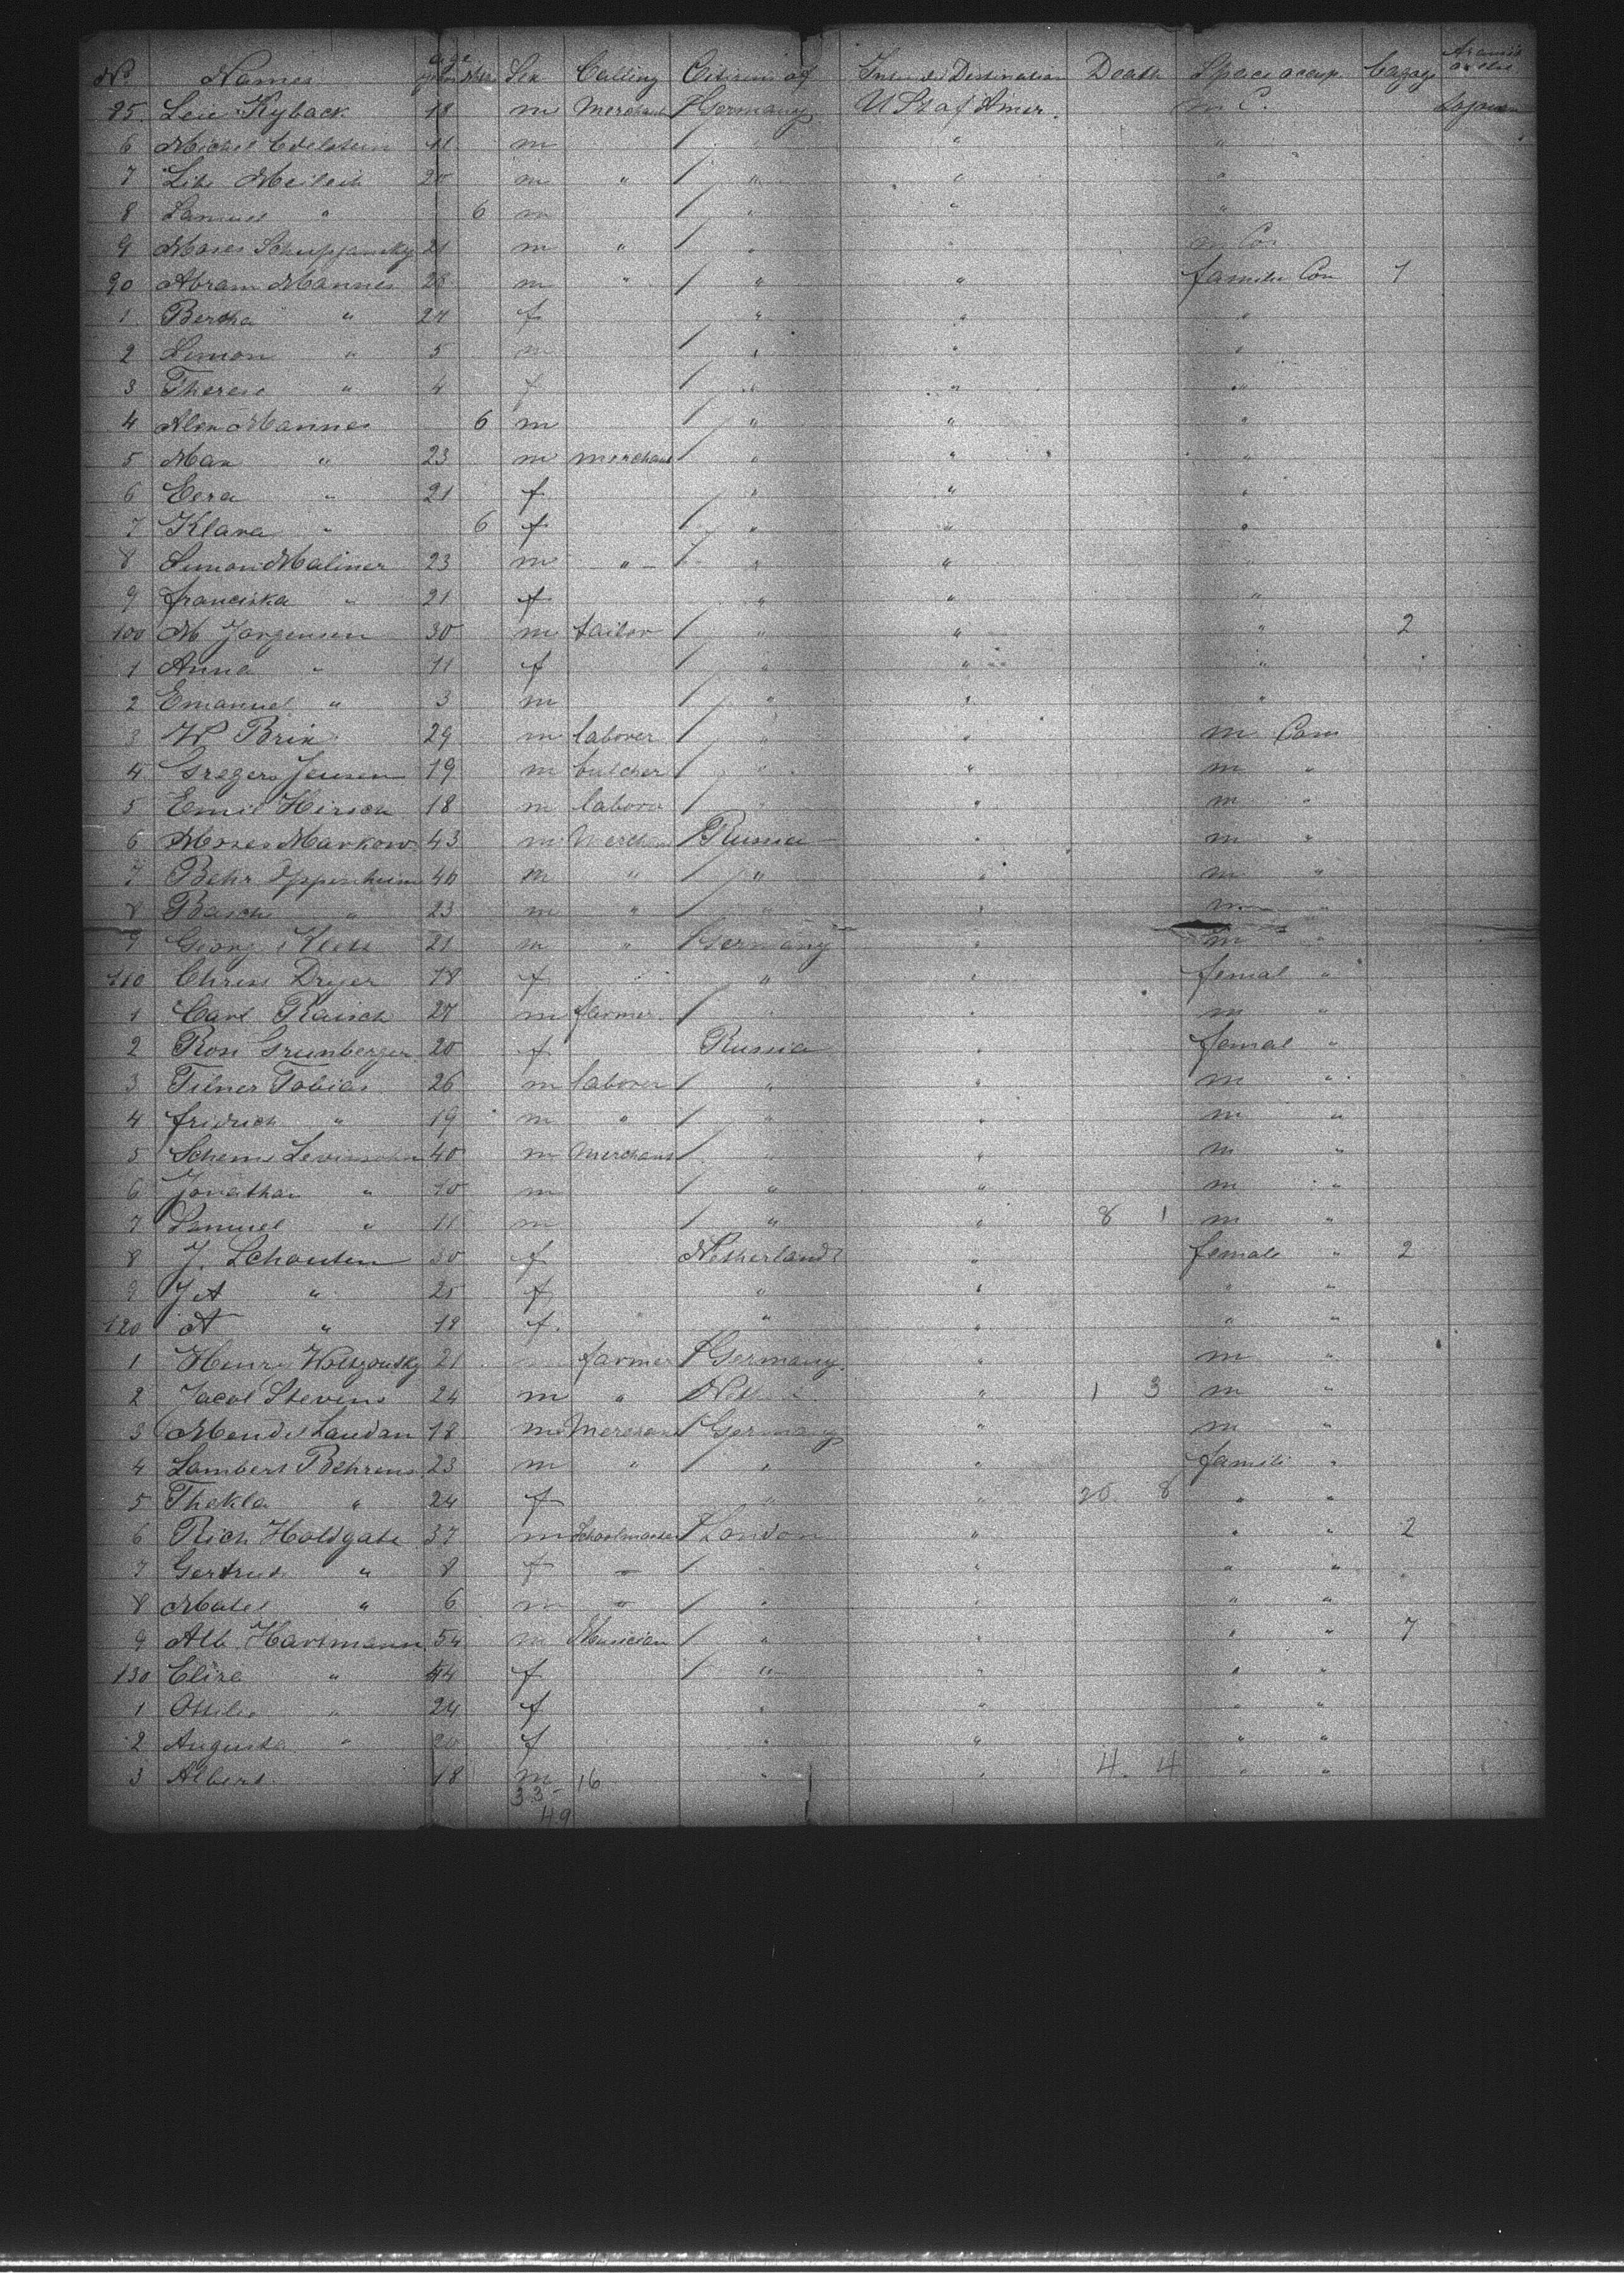 No Names Age years Mths Sex Calling Citizen of Intended Destination Death Space occup. Bagag
85. Leie Kyback 18 m Merchant Germany U St of Amer. m C.
6 Michel Edelstein 11 m " " "
7 20 m " " " "
8 Samuel " 6 m " " "
9 Moses 21 m " " "
90 Abram Mannes 28 m " " " famili Com 1
1 Bertha " 24 f " " "
2 Simon " 5 m " " "
3 Therese " 4 f " " "
4 Alex Mannes 6 m " " "
5 Max " 23 m merchant " " "
6 " 21 f " " "
7 Klara " 6 f " " "
8 Simon Maliner 23 m " " " "
9 franciska " 21 f " " "
100 M Jorgensen 30 m tailor " " " 2
1 Anna " 11 f " " "
2 Emanuel " 3 m " " "
3 W Brix 29 m laborer " " m Com
4 Gregers Jensen 19 m butcher " " m "
5 Emil Hirsch 18 m laborer " " m "
6 Moses Markow 43 m Merchant Russia " m "
7 Behr Oppenheim 40 m " " " m "
8 Basch " 23 m " " " m "
9 Georg 21 m " Germany " m "
110 Chriss Dryer 18 f " " femal "
1 Carl Rausch 27 m farmer " " m "
2 Rosi Grunberger 20 f Russia " femal "
3 Tilner Tobias 26 m laborer " " m "
4 fridrich " 19 m " " " m "
5 Levinsohn 40 m Merchant " " m "
6 Jonathan " 10 m " " m "
7 Samuel " 11 m " " 8 1 m "
8 J. Schouten 30 f Netherland " female " 2
9 J A " 25 f " " " "
120 A " 18 f " " " "
1 Henry 21 farmer Germany " m "
2 Jacob Stevens 24 m " " 1 3 m "
3 Mendel Landau 18 m Merchant Germany " m "
4 Lambert Behrens 23 m " " " famili "
5 Thekla " 24 f " " 20 8 " "
6 Rich Holdgate 37 m Schoolmaster London " " " 2
7 Gertrud " 8 f " " " " "
8 " 6 m " " " " "
9 Alb. Hartmann 54 m Musician " " " " 7
130 Elise " 44 f " " " "
1 " 24 f " " " "
2 Augusta " 20 f " " " "
3 Albert 18 m 16 " " 4. 4 " "
33
49